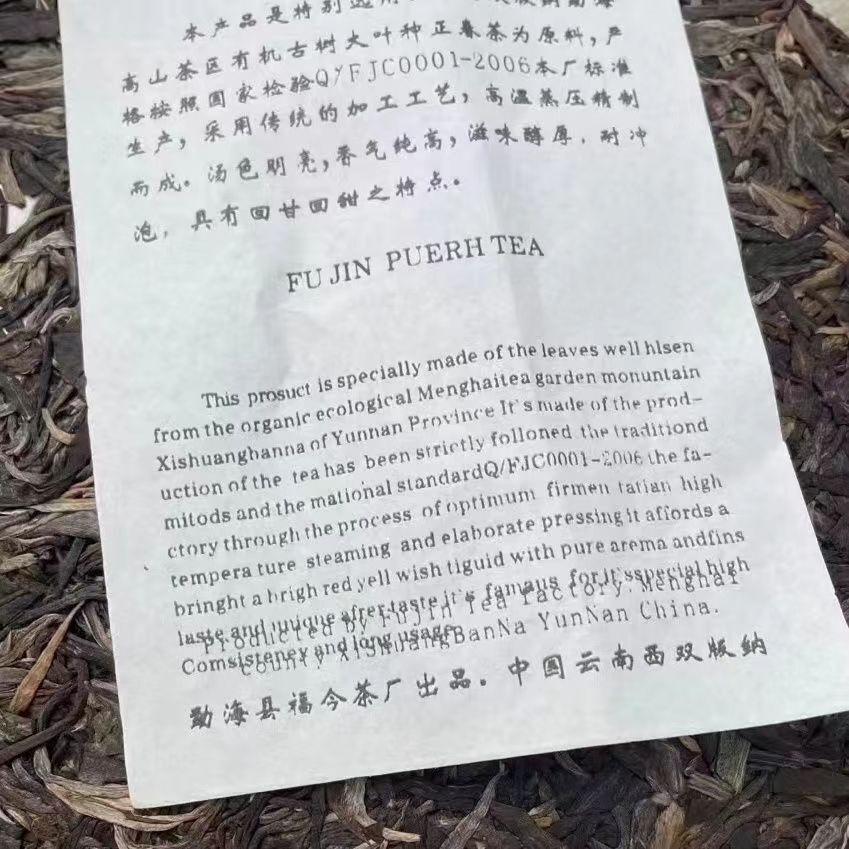 本产品是特别选用
高山茶区有机古树大叶种正春茶为原料,严
格按照国家检验Q/FJC0001-2006本厂标准
生产,采用传统的加工工艺,高温蒸压精制
而成。汤色明亮,香气纯高,滋味醇厚,耐冲
泡,具有回甘回甜之特点。
FU JIN PUERH TEA
This prosuct is specially made of the leaves well hlsen
from the organic ecological Menghaitea garden monuntain
Xishuanghanna of Yunnan Province It's made of the prod-
uction of the tea has been strictly folloned the traditiond
mitods and the mational standardQ/FJC0001-2006 the fa-
ctory through the process of optimum firmen tatian high
tempera ture steaming and elaborate pressing it affords a
bringht a brigh red yell wish tiguid with pure arema andfins
taste and unique after taste it's famaus for it's special high
Producted by Fujin Tea Factory. Menghai
Comsistency and long usage
County XishuangBanNa YunNan China.
勐海县福今茶厂出品。中国云南西双版纳